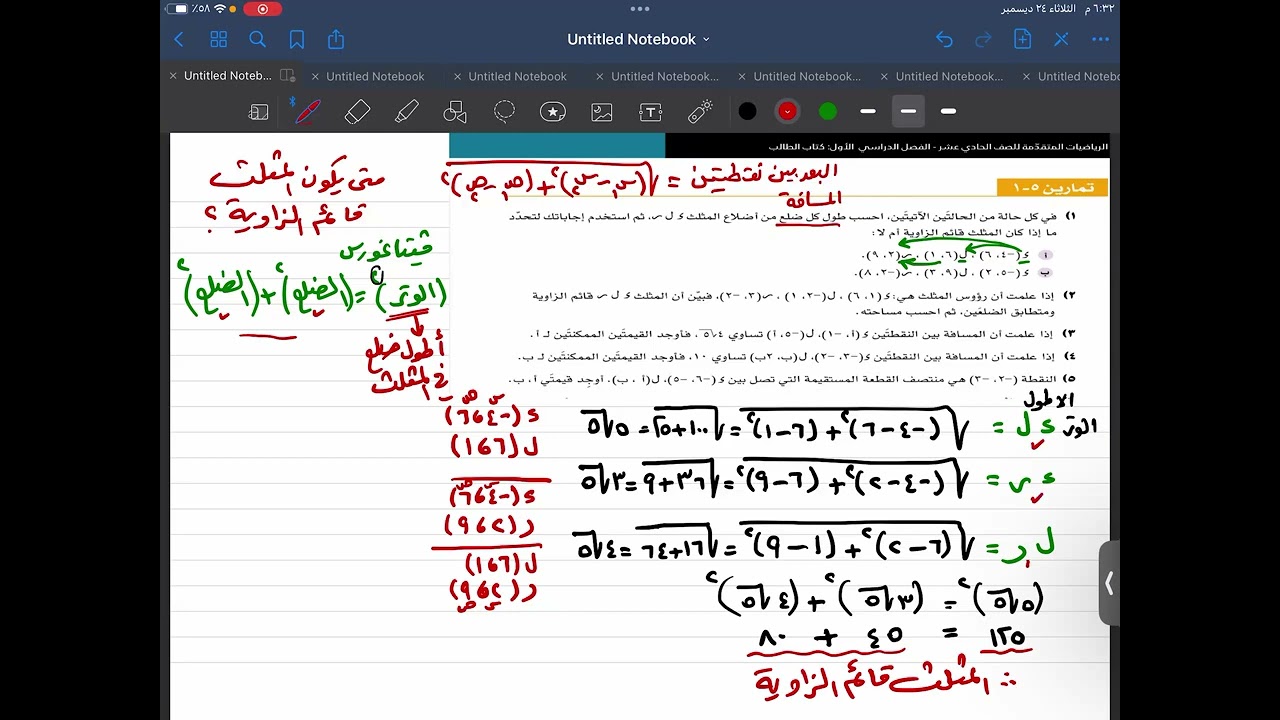 ٦:٣٢ م الثلاثاء ٢٤ ديسمبر
٥٨٪
Untitled Notebook
Untitled Noteb...
Untitled Notebook
Untitled Notebook
Untitled Notebook...
Untitled Notebook...
Untitled Notebook...
Untitled Notebook
الرياضيات المتقدّمة للصف الحادي عشر - الفصل الدراسي الأول: كتاب الطالب
البعد بين نقطتين = √(س₁-س₂)² + (ص₁-ص₂)²
المسافة
تمارين ٥-١
١) في كل حالة من الحالتَين الآتيتَين، احسب طول كل ضلع من أضلاع المثلث ء ل ر، ثم استخدم إجاباتك لتحدّد
ما إذا كان المثلث قائم الزاوية أم لا:
أ ء(-٤، ٦)، ل(٦، ١)، ر(٢، ٩).
ب ء(-٥، ٢)، ل(٩، ٣)، ر(-٢، ٨).
٢) إذا علمت أن رؤوس المثلث هي: ء(١، ٦)، ل(-٢، ١)، ر(٣، -٢)، فبيّن أن المثلث ء ل ر قائم الزاوية
ومتطابق الضلعَين، ثم احسب مساحته.
٣) إذا علمت أن المسافة بين النقطتَين ء(أ، -١)، ل(-٥، أ) تساوي ٤√٥، فأوجد القيمتَين الممكنتَين لـ أ.
٤) إذا علمت أن المسافة بين النقطتَين ء(-٣، -٢)، ل(ب، ٢ب) تساوي ١٠، فأوجد القيمتَين الممكنتَين لـ ب.
٥) النقطة (-٢، -٣) هي منتصف القطعة المستقيمة التي تصل بين ء(-٦، -٥)، ل(أ، ب). أوجد قيمتَي أ، ب.
متى يكون المثلث
قائم الزاوية؟
فيثاغورس
(الوتر)² = (الضلع)² + (الضلع)²
أطول ضلع
في المثلث
س ص
ء(-٤، ٦)
ل(٦، ١)
س ص
ء(-٤، ٦)
ر(٢، ٩)
ل(٦، ١)
ر(٢، ٩)
س ص
الاطول
الوتر ء ل = √(-٤-٦)² + (٦-١)² = √١٠٠+٢٥ = ٥√٥
ء ر = √(-٤-٢)² + (٦-٩)² = √٣٦+٩ = ٣√٥
ل ر = √(٦-٢)² + (١-٩)² = √١٦+٦٤ = ٤√٥
(٥√٥)² = (٣√٥)² + (٤√٥)²
١٢٥ = ٤٥ + ٨٠
∴ المثلث قائم الزاوية